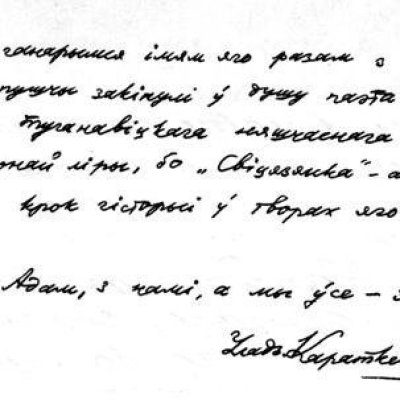 ганарымся імям яго разам з
пушчы закінулі ў душу паэта
туганавіцкага няшчаснага
ліры, бо „Свіцязянка“ - а
крок гісторыі ў творах яго
Адам, з намі, а мы ўсе - з
Уладз Каратке